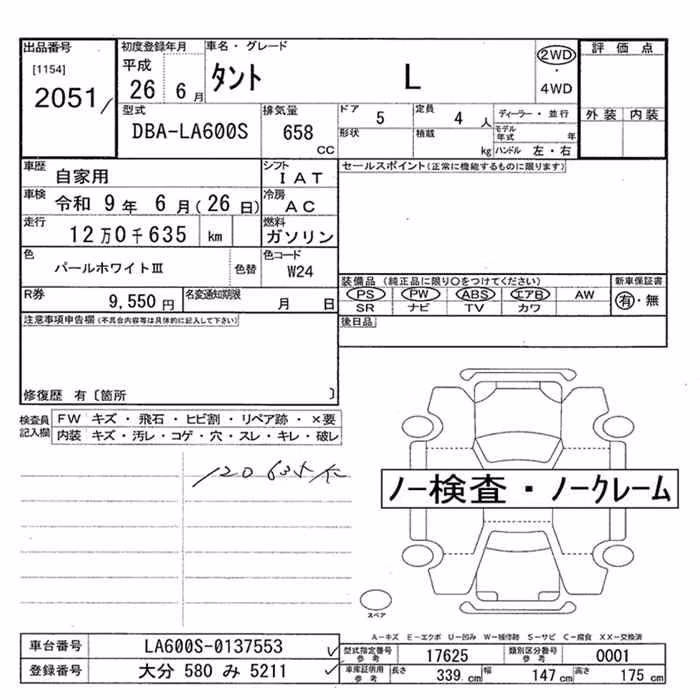 出品番号
[1154]
2051
初度登録年月
平成
26 6月
車名・グレード
タント L
2WD
・
4WD
評価点
外装 内装
型式
DBA-LA600S
排気量
658
cc
ドア 5
定員 4 人
形状
積載 kg
ディーラー・並行
モデル年式 年
ハンドル 左・右
車歴 自家用
シフト
IAT
車検 令和 9年 6月(26日)
冷房
AC
走行
12万0千635 km
燃料
ガソリン
色
パールホワイトIII
色替
色コード
W24
R券
9,550円
名変通知期限
月 日
セールスポイント(正常に機能するものに限ります)
装備品 (純正品に限り○をつけてください)
PS PW ABS エアB AW
SR ナビ TV カワ
新車保証書
有・無
後日品
注意事項申告欄(不具合内容等は具体的に記入して下さい)
修復歴 有〔箇所 〕
検査員
記入欄
FW キズ・飛石・ヒビ割・リペア跡・×要
内装 キズ・汚レ・コゲ・穴・スレ・キレ・破レ
120635
ノー検査・ノークレーム
スペア
A−キズ E−エクボ U−凹み W−補修跡 S−サビ C−腐食 XX−交換済
車台番号 LA600S-0137553
登録番号 大分 580 み 5211
型式指定番号
参考
17625
類別区分番号
参考
0001
車庫証明用
参考
長さ 339 cm 幅 147 cm 高さ 175 cm